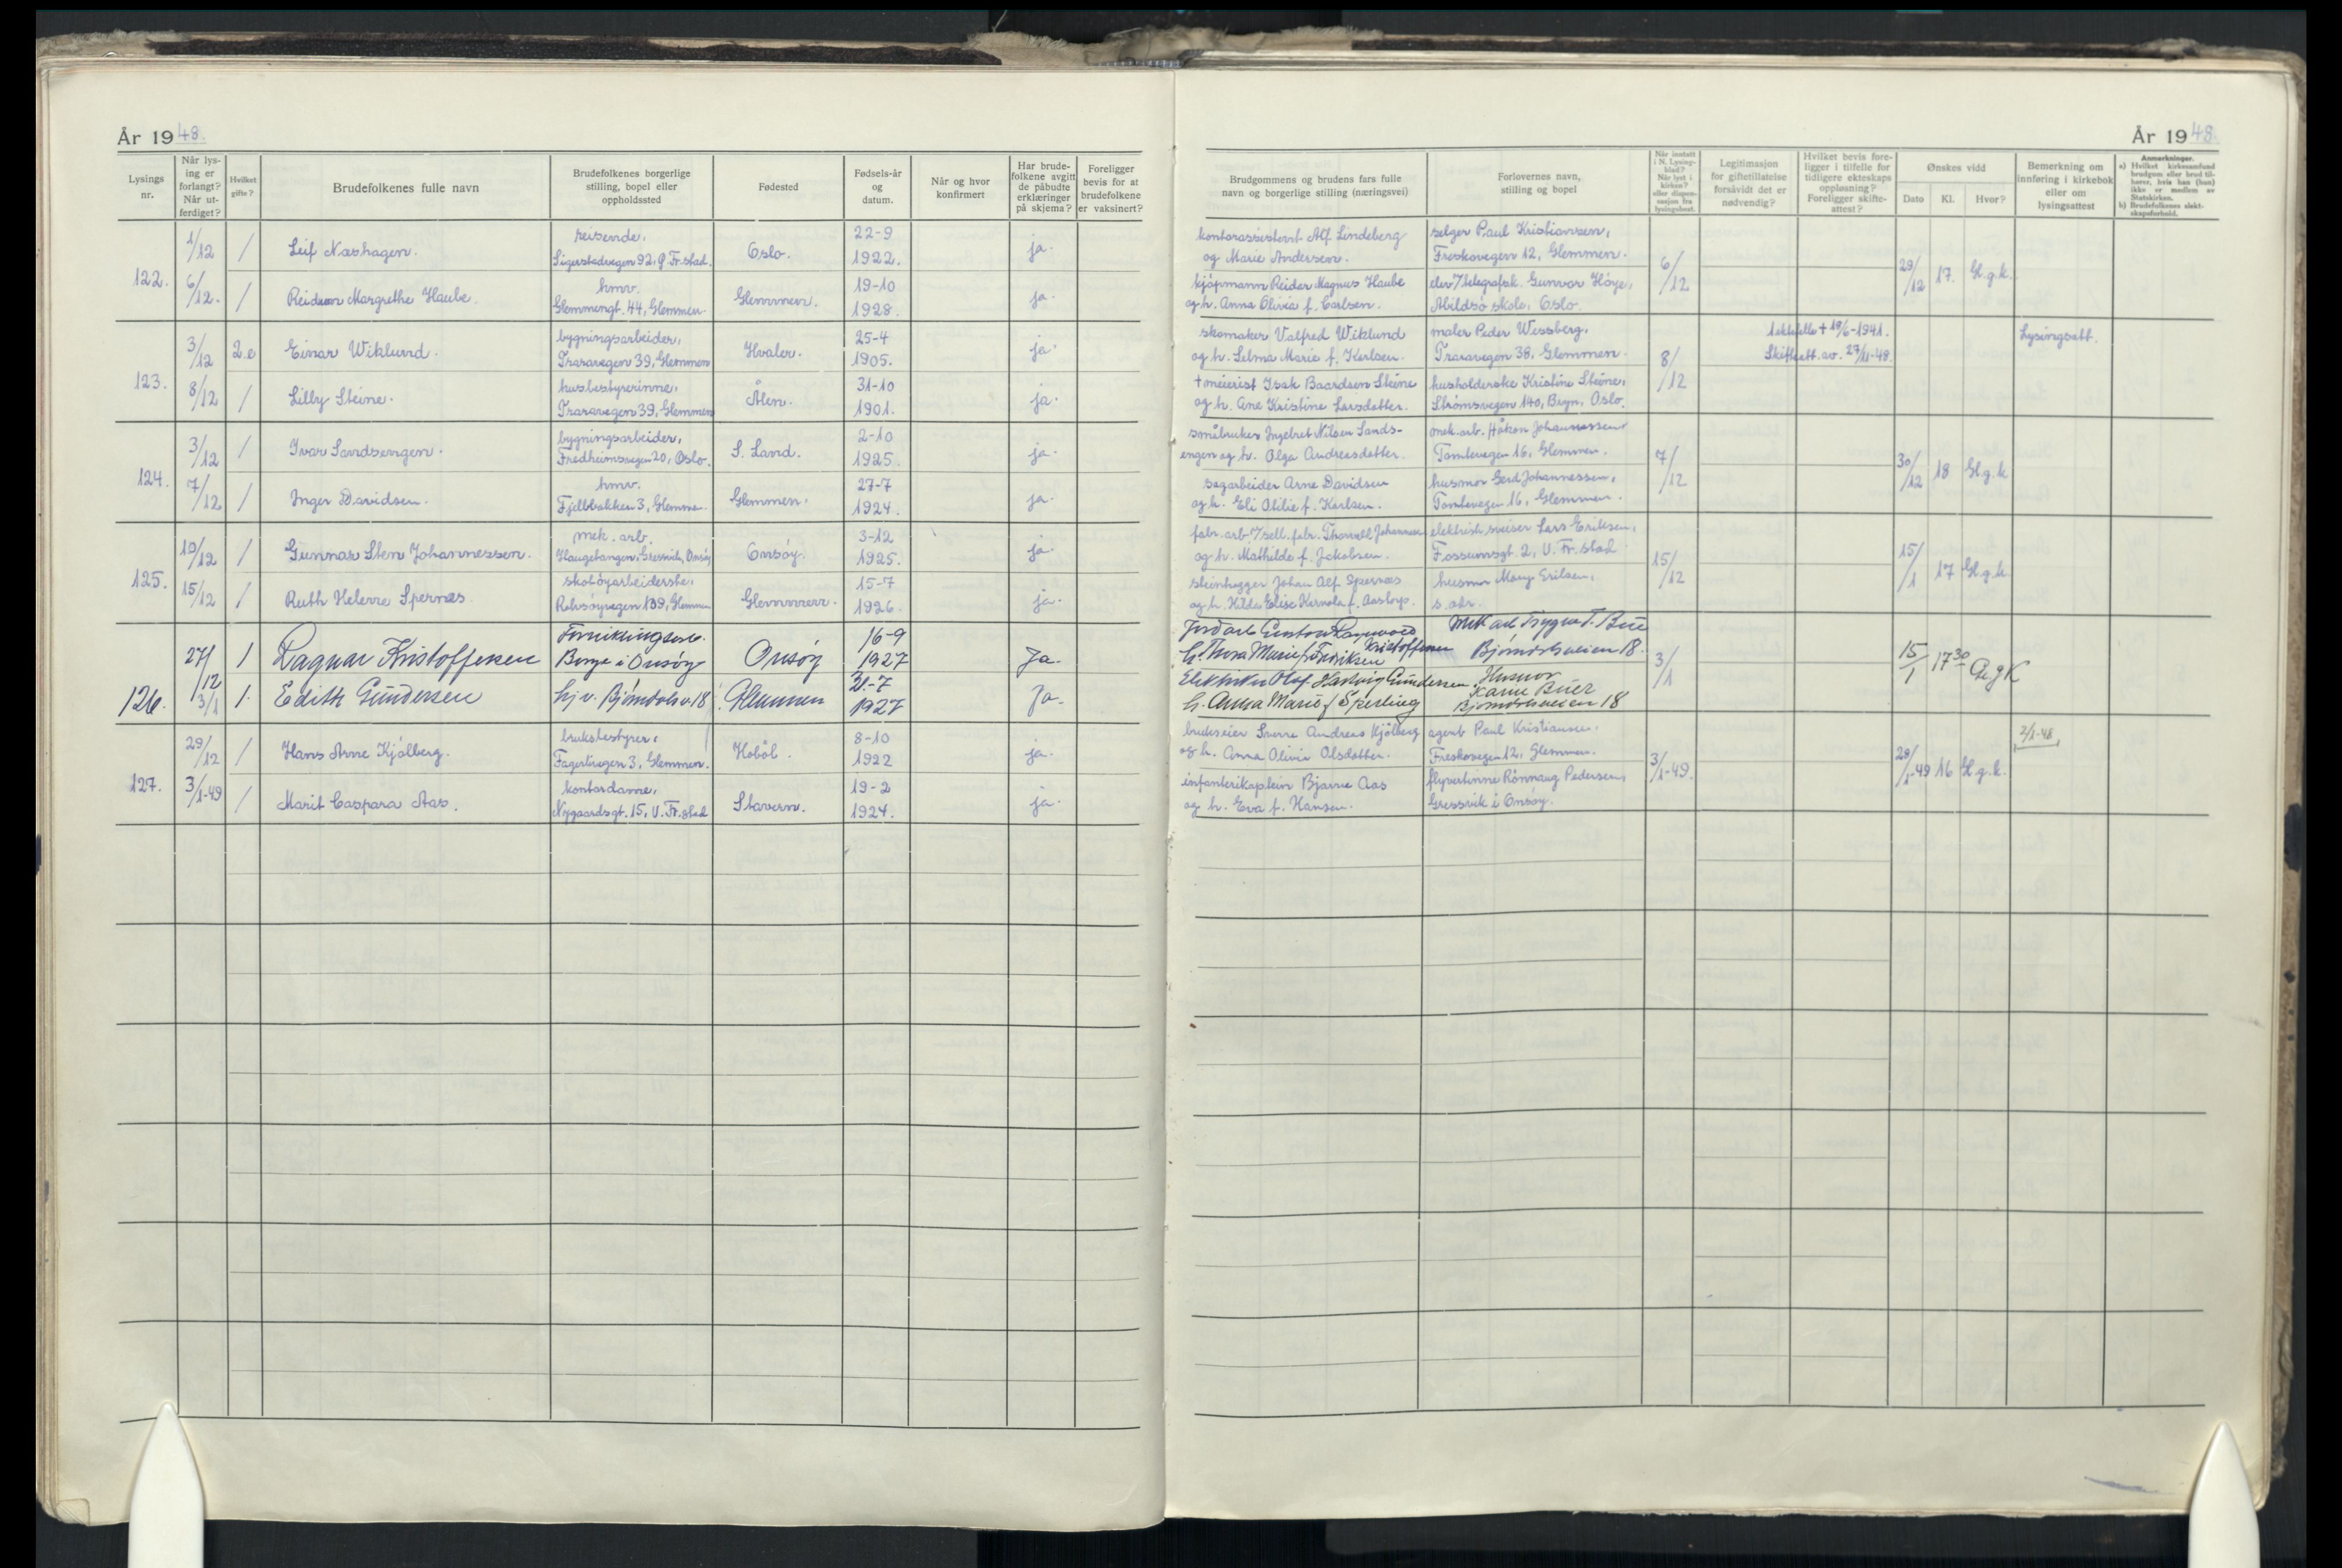 År 1948.
Lysings nr.
Når lysing er forlangt? Når utferdiget?
Hvilket gifte?
Brudefolkenes fulle navn
Brudefolkenes borgerlige stilling, bopel eller oppholdssted
Fødested
Fødsels-år og datum.
Når og hvor konfirmert
Har brudefolkene avgitt de påbudte erklæringer på skjema?
Foreligger bevis for at brudefolkene er vaksinert?
122.
1/12 / Leif Næshagen. reisende, Oslo. 22-9 1922. ja.
6/12. / Reidun Margrethe Haube. hmv. Glemmengt. 44, Glemmen. Glemmen. 19-10 1928. ja.
123.
3/12 2.e Einar Wiklund. bygningsarbeider, Traravegen 39, Glemmen Hvaler. 25-4 1905. ja.
8/12 / Lilly Steine. husbestyrerinne, Traravegen 39, Glemmen Ålen. 31-10 1901. ja.
124.
3/12 / Ivar Sandsengen. bygningsarbeider, Fredheimsvegen 20, Oslo. S. Land. 2-10 1925. ja.
7/12 / Inger Davidsen. hmv. Fjellbakken 3, Glemmen. Glemmen. 27-7 1924. ja.
125.
10/12 / Gunnar Sten Johannessen. mek. arb. Haugetangen, Gressvik, Onsøy Onsøy. 3-12 1925. ja.
15/12 / Ruth Helene Spernæs. skotøyarbeiderske, Rolvsøyvegen 139, Glemmen Glemmen. 15-7 1926. ja.
126.
27/12 1 Ragnar Kristoffersen Onsøy 16-9 1927 Ja.
3/1 1. Edith Gundersen Hj v. Bjørndalsv. 18 Glemmen 21.-7 1927 Ja-
127.
29/12 / Hans Arne Kjølberg. bruksbestyrer, Fagerlivegen 3, Glemmen. Hobøl. 8-10 1922 ja.
3/1-49 / Marit Caspara Aas. kontordame, Nygaardsgt. 15, V. Fr.stad Stavern. 19-2 1924. ja.
År 1948.
Brudgommens og brudens fars fulle navn og borgerlige stilling (næringsvei)
Forlovernes navn, stilling og bopel
Når innsatt i N. Lysingblad? Når lyst i kirken? eller dispensasjon fra lysingsbest.
Legitimasjon for giftetillatelse forsåvidt det er nødvendig?
Hvilket bevis foreligger i tilfelle for tidligere ekteskaps oppløsning? Foreligger skifteattest?
Ønskes vidd
Dato Kl. Hvor?
Bemerkning om innføring i kirkebok eller om lysingsattest
Anmerkninger.
a) Hvilket kirkesamfund brudgom eller brud tilhører, hvis han (hun) ikke er medlem av Statskirken.
b) Brudefolkenes slektskapsforhold.
kontorassistent Alf Lindeberg og Marie Andersen. selger Paul Kristiansen, Freskovegen 12, Glemmen. 6/12 29/12 17. Gl.g.k.
kjøpmann Reidar Magnus Haube og h. Anna Olivia f. Carlsen. elev v/telegrafsk. Gunvor Høye, Abildsø skole, Oslo.
skomaker Valfred Wiklund og h. Selma Marie f. Karlsen. maler Peder Wessberg, Traravegen 38, Glemmen. 8/12 1 ektefelle + 19/6-1941. Skifteatt. av. 27/11-48. Lysingsatt.
+ meierist Isak Baardsen Steine og h. Ane Kristine Larsdatter. husholderske Kristine Steine, Strømsvegen 140, Bryn, Oslo.
småbruker Ingebret Nilsen Sandsengen og h. Olga Andreasdatter. mek.arb. Håkon Johannessen, Tomtevegen 16, Glemmen. 7/12 30/12 18 Gl.g.k
sagarbeider Arne Davidsen og h. Eli Otilie f. Karlsen. husmor Gerd Johannessen, Tomtevegen 16, Glemmen.
og h. Mathilde f. Jakobsen. elektrisk sveiser Lars Eriksen, Fossumsgt. 2, V. Fr.stad 15/12 15/1 17 Gl.g.k
steinhugger Johan Alf Spernæs husmor s. adr.
h. Thora Marie f. Fredriksen Bjørndalsveien 18. 3/1 15/1 17 30 Gl g K
Olaf Hartvig Gundersen h. Anna Marie f Sperling Husmor Karin Buer Bjørndalsveien 18
brukseier Sverre Andreas Kjølberg og h. Anna Olivia Olsdatter. agent Paul Kristiansen, Freskovegen 12, Glemmen. 3/1-49. 28/1-49 16 Gl.g.k. 2/1-48
infanterikaptein Bjarne Aas og h. Eva f. Hansen. flyvertinne Rønnaug Pedersen, Gressvik i Onsøy.